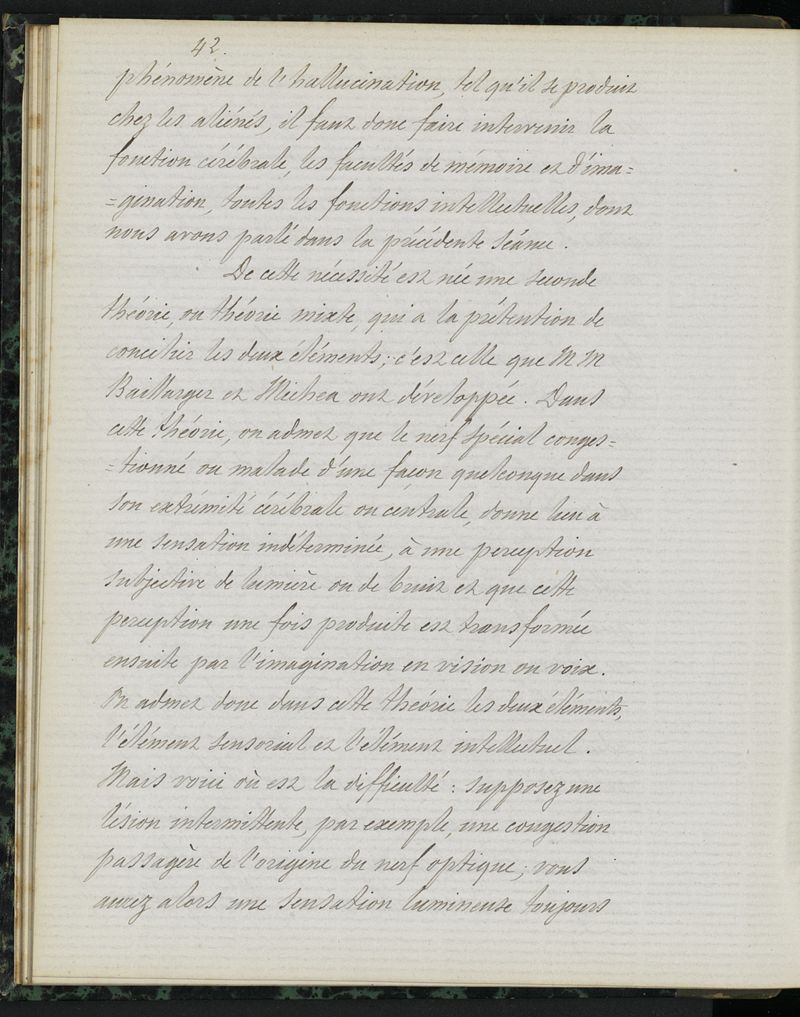 42.
phénomène de l'hallucination, tel qu'il se produit
chez les aliénés, il faut donc faire intervenir la
fonction cérébrale, les facultés de mémoire et d'ima=
=gination, toutes les fonctions intellectuelles, dont
nous avons parlé dans la précédente séance.
De cette nécessité est née une seconde
théorie, ou théorie mixte, qui a la prétention de
concilier les deux éléments; c'est celle que M M
Baillarger et Michea ont développée. Dans
cette théorie, on admet que le nerf spécial conges=
=tionné ou malade d'une façon quelconque dans
son extrémité cérébrale ou centrale, donne lieu à
une sensation indéterminée, à une perception
subjective de lumière ou de bruit et que cette
perception une fois produite est transformée
ensuite par l'imagination en vision ou voix.
On admet donc dans cette théorie les deux eléments,
l'élément sensorial et l'elément intellectuel.
Mais voici où est la difficulté : supposez une
lésion intermittente, par exemple, une congestion
passagère de l'origine du nerf optique; vous
aurez alors une sensation lumineuse toujours